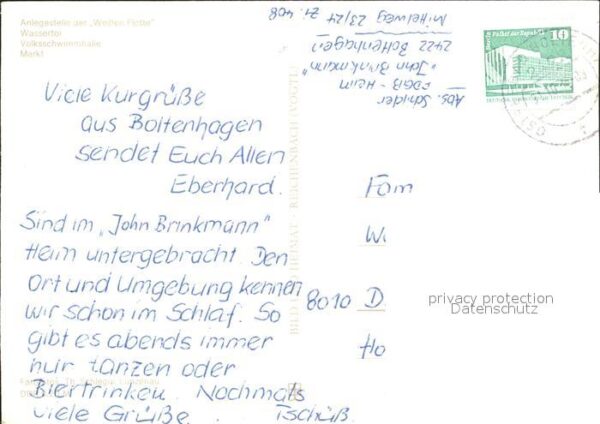 Anlegestelle der „Weißen Flotte“
Wassertor
Volksschwimmhalle
Markt
Viele Kurgrüße
aus Boltenhagen
sendet Euch Allen
Eberhard.
Sind im „John Brinkmann“
Heim untergebracht. Den
Ort und Umgebung kennen
wir schon im Schlaf. So
gibt es abends immer
nur tanzen oder
Biertrinken. Nochmals
viele Grüße. Tschüß.
Abs. Schider
FDGB-Heim
"John Brinkmann"
2422 Boltenhagen
Mittelweg 23/24 Zi. 408
BILD UND HEIMAT REICHENBACH (VOGTL)
Berlin, Palast der Republik
10
Fam
Wi
8010 D
Ho
privacy protection
Datenschutz